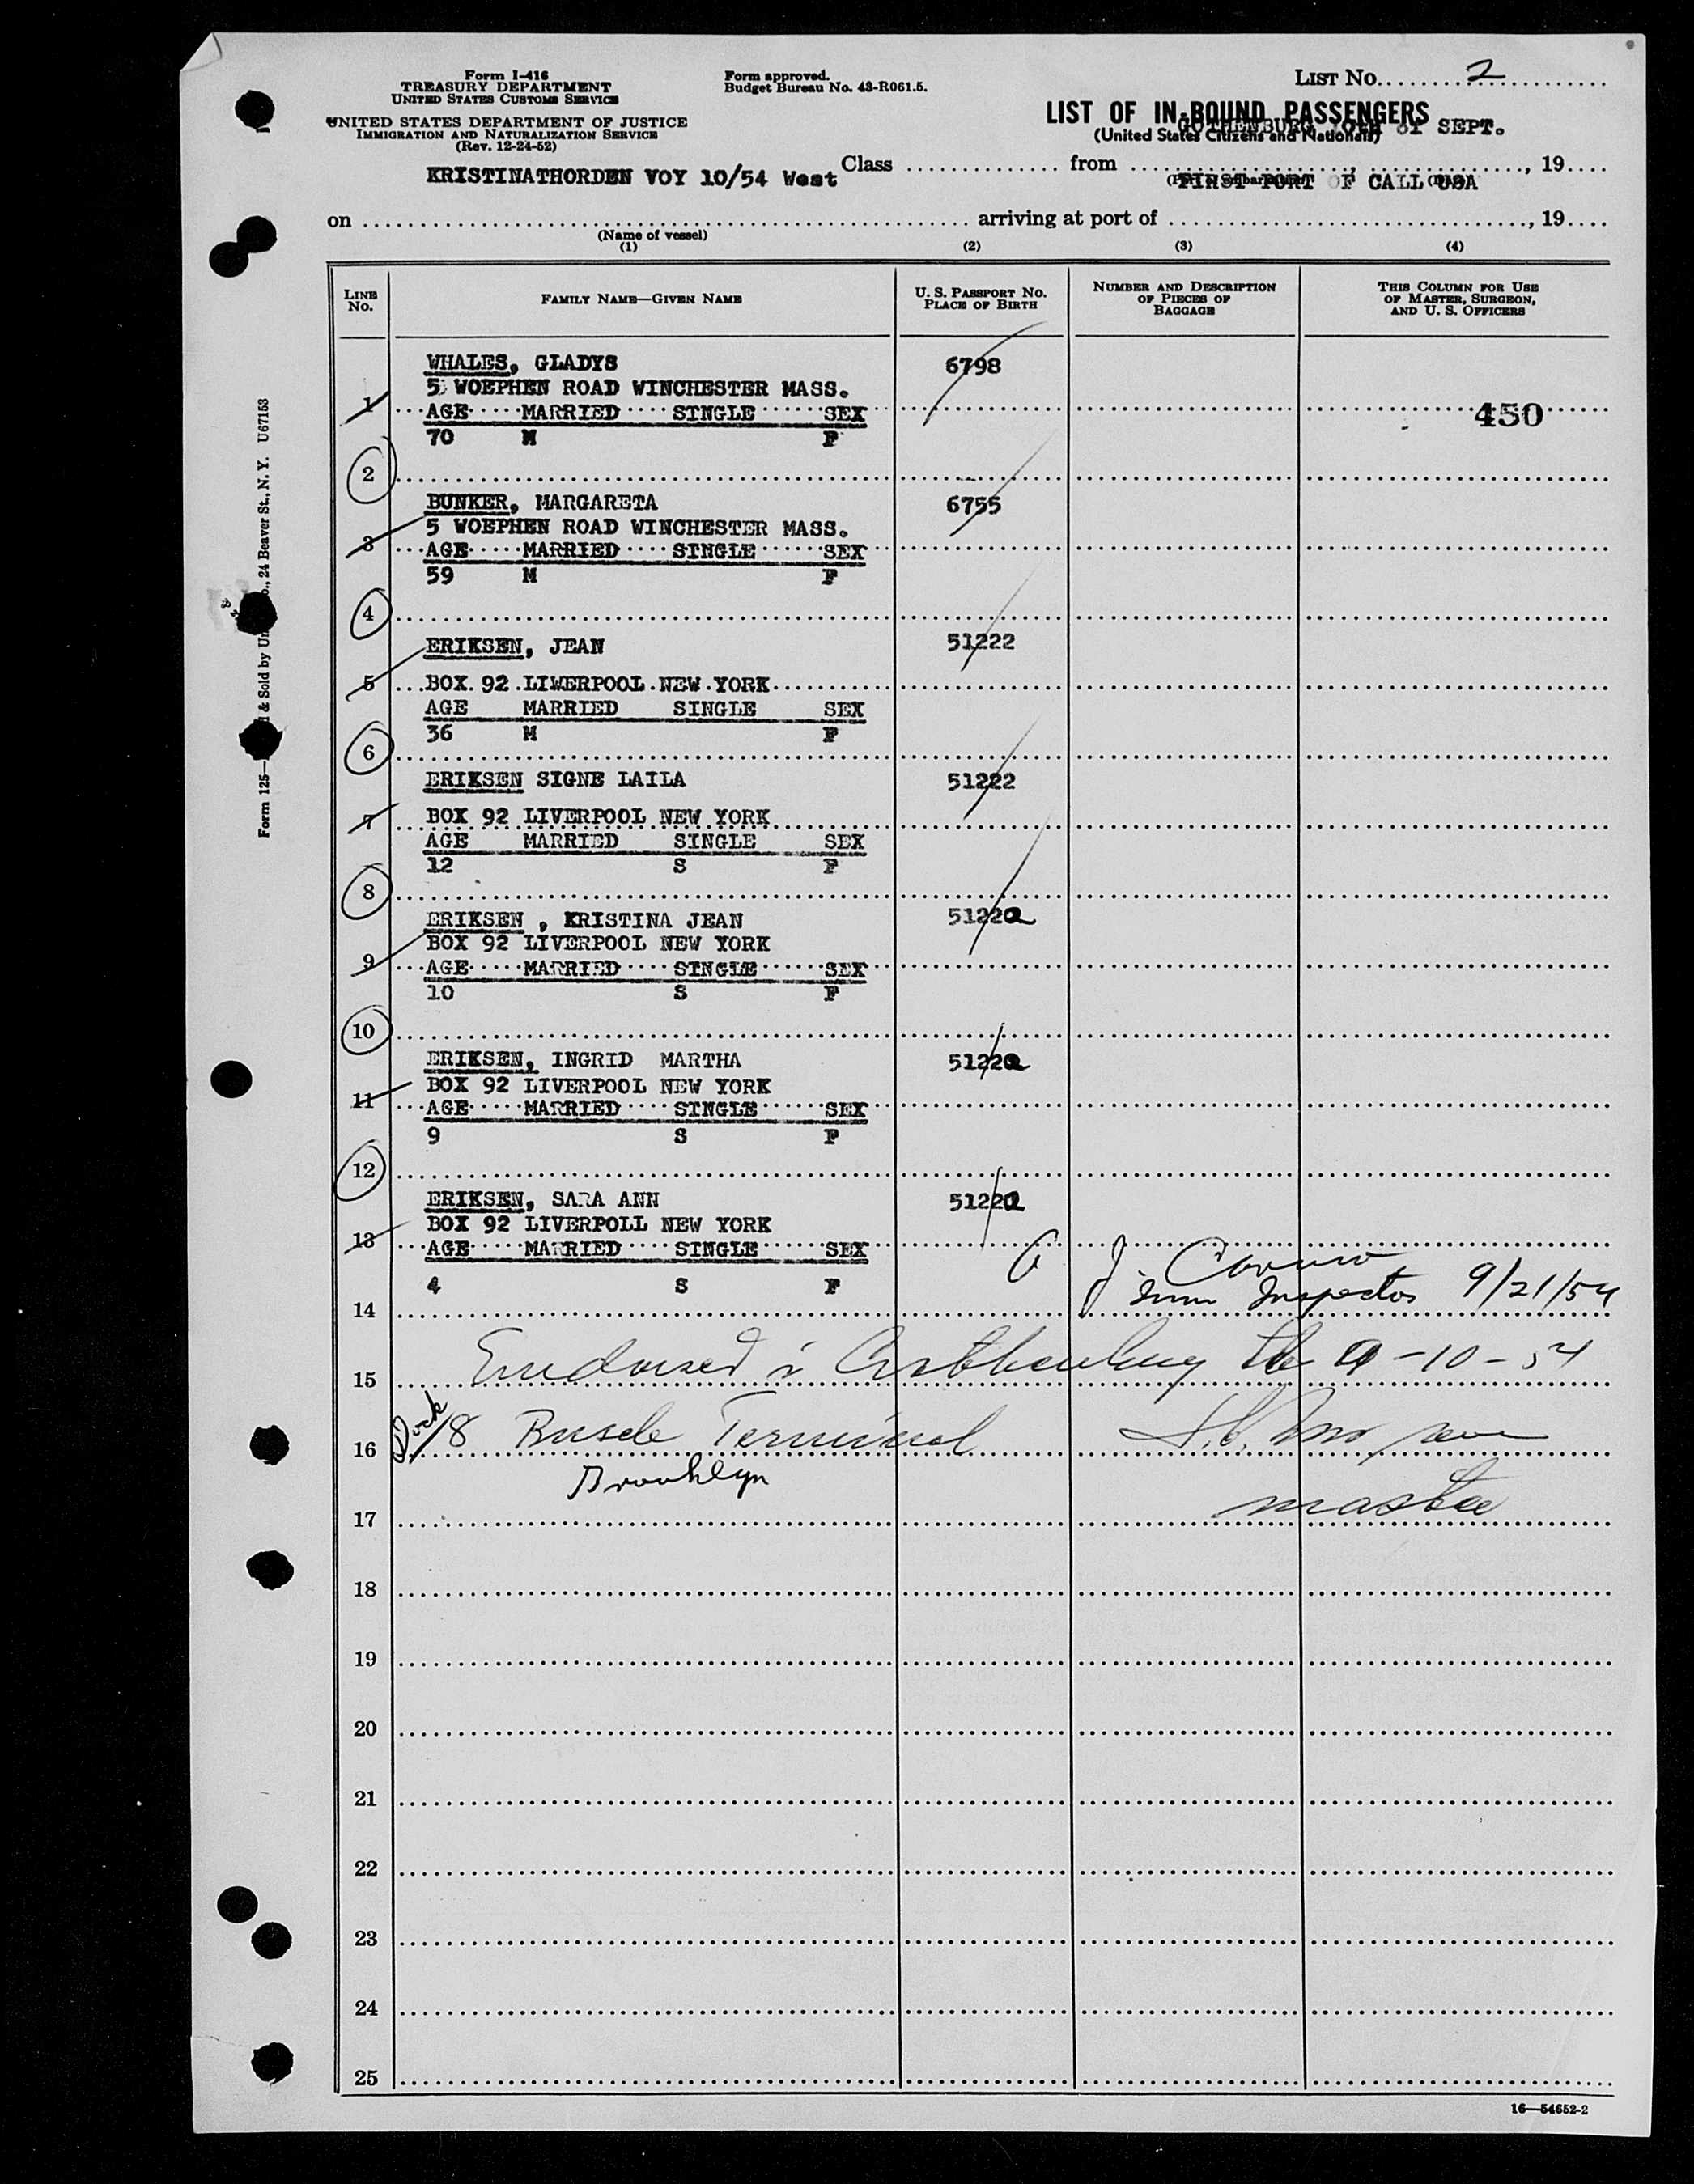 Form I-416
TREASURY DEPARTMENT
UNITED STATES CUSTOMS SERVICE
UNITED STATES DEPARTMENT OF JUSTICE
IMMIGRATION AND NATURALIZATION SERVICE
(Rev. 12-24-52)
Form approved.
Budget Bureau No. 43-R061.5.
LIST No. 2
LIST OF IN-BOUND PASSENGERS
(United States Citizens and Nationals)
GOTHENBURG SEPT.
KRISTINATHORDEN VOY 10/54 West
Class from , , 19
FIRST PORT OF CALL USA
on arriving at port of , 19
(Name of vessel)
(1) (2) (3) (4)
LINE No. FAMILY NAME—GIVEN NAME U. S. PASSPORT No. PLACE OF BIRTH NUMBER AND DESCRIPTION OF PIECES OF BAGGAGE THIS COLUMN FOR USE OF MASTER, SURGEON, AND U. S. OFFICERS
WHALES, GLADYS 6798
5 WOEPHEN ROAD WINCHESTER MASS.
1 AGE MARRIED SINGLE SEX 450
70 M F
2
BUNKER, MARGARETA 6755
5 WOEPHEN ROAD WINCHESTER MASS.
3 AGE MARRIED SINGLE SEX
59 M F
4
ERIKSEN, JEAN 51222
5 BOX 92 LIWERPOOL NEW YORK
AGE MARRIED SINGLE SEX
36 M F
6
ERIKSEN SIGNE LAILA 51222
7 BOX 92 LIVERPOOL NEW YORK
AGE MARRIED SINGLE SEX
12 S F
8
ERIKSEN , KRISTINA JEAN 51222
BOX 92 LIVERPOOL NEW YORK
9 AGE MARRIED SINGLE SEX
10 S F
10
ERIKSEN, INGRID MARTHA 51222
BOX 92 LIVERPOOL NEW YORK
11 AGE MARRIED SINGLE SEX
9 S F
12
ERIKSEN, SARA ANN 51222
BOX 92 LIVERPOLL NEW YORK
13 AGE MARRIED SINGLE SEX
4 S F
J.
Imm Inspector 9/21/54
14
15 Endorsed in Gothenburg the -10-54
16 Dock 18 Terminal
Brooklyn
17 master
18
19
20
21
22
23
24
25
16—54652-2
Form 125— & Sold by 24 Beaver St., N. Y. U67153